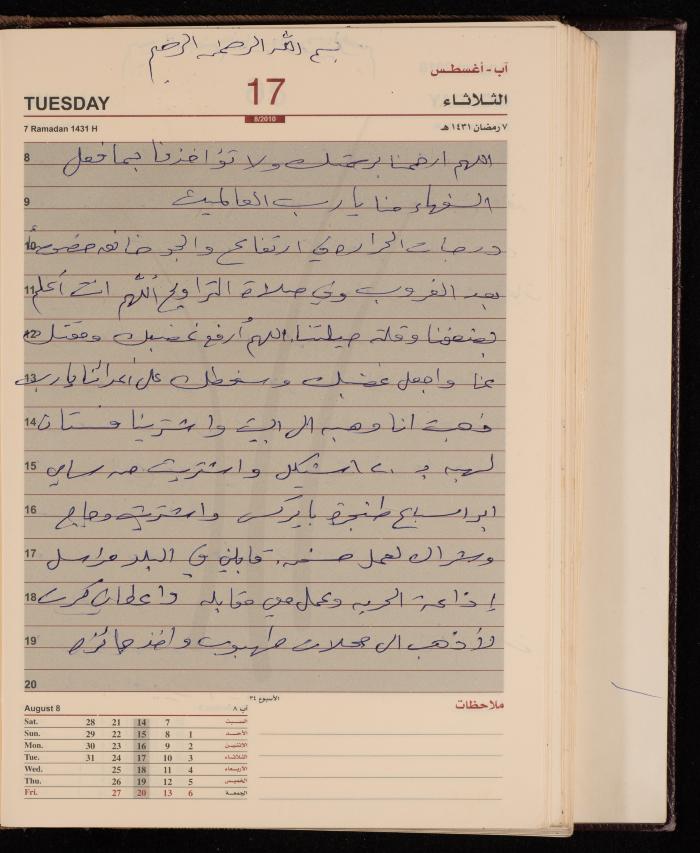 بسم الله الرحمن الرحيم
آب - أغسطس
TUESDAY
17
الثلاثاء
8/2010
7 Ramadan 1431 H
٧ رمضان ١٤٣١ هـ
8 اللهم ارحمنا برحمتك ولا تؤاخذنا بما فعل
9 السفهاء منا يا رب العالمين
10 درجات الحرارة في ارتفاع والجو خانق خصوصاً
11 بعد الغروب وفي صلاة التراويح اللهم انت أعلم
12 بضعفنا وقلة حيلتنا اللهم أرفع غضبك ومقتك
13 عنا واجعل غضبك وسخطك على أعدائنا يا رب
14 ذهبت انا وهبه الى البيت واشترينا فستان
15 لهبه بـ شيكل واشتريت من
16 ابو اسباع طنجرة بايركس واشتريت دجاج
17 وشراك لعمل قابلني في البلد مراسل
18 إذاعة الحريه وعمل معي مقابله واعطاني كرت
19 لأذهب الى محلات طهبوب واخذ جائزه
20
August 8
الأسبوع ٣٤
آب ٨
ملاحظات
Sat. 28 21 14 7 السبت
Sun. 29 22 15 8 1 الأحد
Mon. 30 23 16 9 2 الاثنين
Tue. 31 24 17 10 3 الثلاثاء
Wed. 25 18 11 4 الأربعاء
Thu. 26 19 12 5 الخميس
Fri. 27 20 13 6 الجمعة